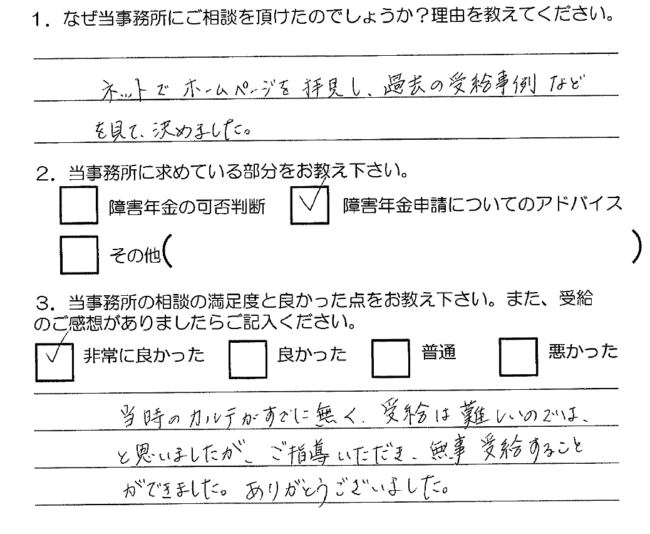 1．なぜ当事務所にご相談を頂けたのでしょうか？理由を教えてください。
ネットでホームページを拝見し、過去の受給事例など
を見て、決めました。
2．当事務所に求めている部分をお教え下さい。
障害年金の可否判断 障害年金申請についてのアドバイス
その他( )
3．当事務所の相談の満足度と良かった点をお教え下さい。また、受給
のご感想がありましたらご記入ください。
非常に良かった 良かった 普通 悪かった
当時のカルテがすでに無く、受給は難しいのでは、
と思いましたが、ご指導いただき、無事 受給すること
ができました。ありがとうございました。